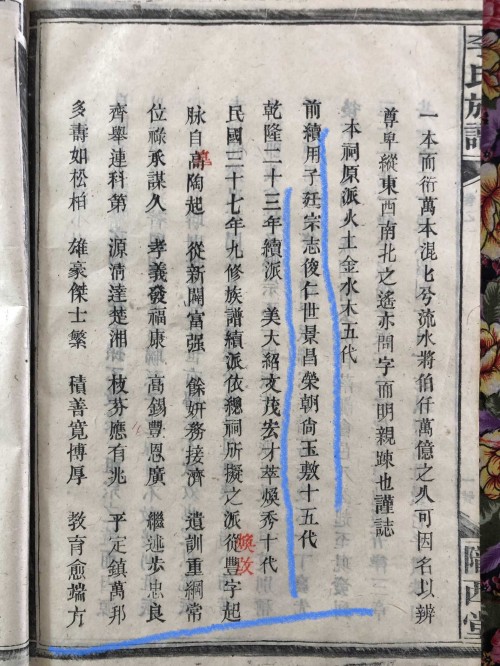 李氏族譜
隴西堂
一本而衍萬本混匕兮流水將佰仟萬億之人可因名以辨
尊卑縱東西南北之遙亦問字而明親疎也謹誌
本祠原派火土金水木五代
前續用子廷宗志俊仁世景昌榮朝尙玉敷十五代
乾隆二十三年續派 美大紹文茂宏才萃煥秀十代
民國三十七年九修族譜續派依總祠所擬之派從豐字起
煥改
脉自高陶起 從新闢富强 餘妍務接濟 遺訓重綱常
位祿承謀久 孝義發福康 高錫豐恩廣 繼述步忠良
齊舉連科第 源清達楚湘 枝芬應有兆 平定鎮萬邦
多壽如松柏 雄豪傑士繁 積善寬博厚 教育愈端方